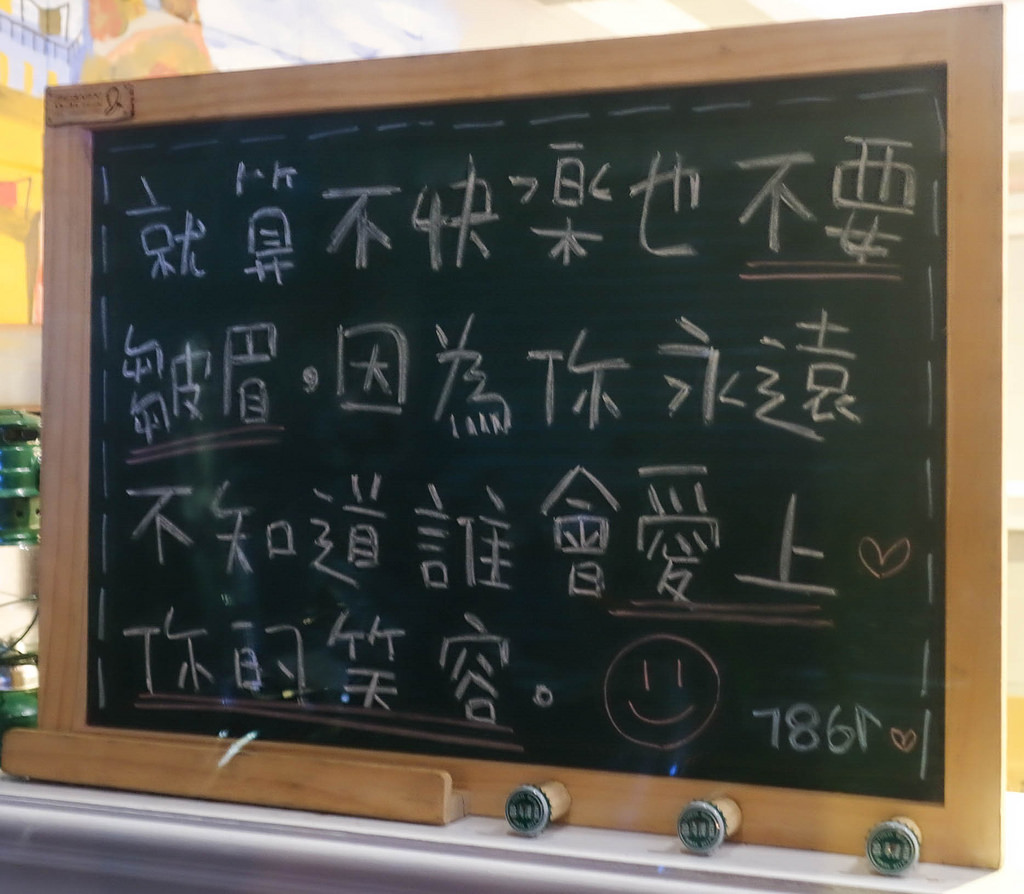 就算不快樂也不要
皺眉，因為你永遠
不知道誰會愛上
你的笑容。
1987